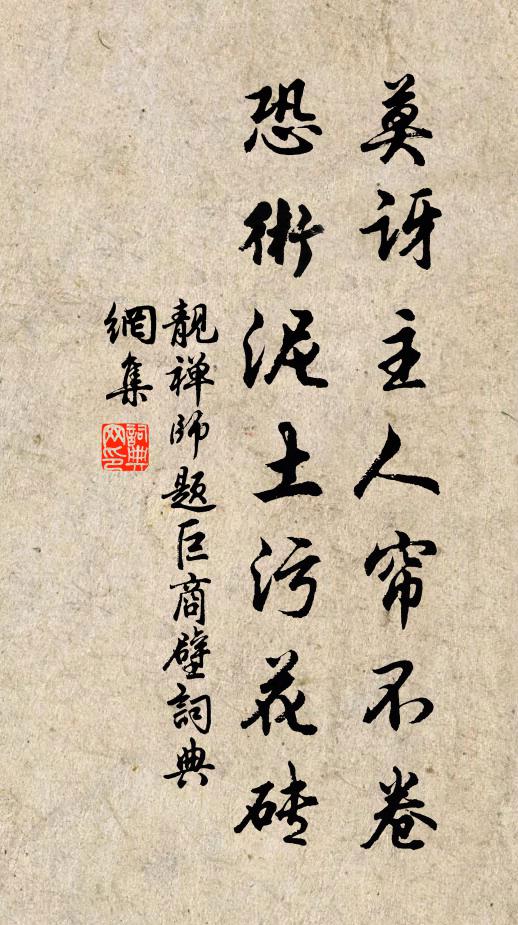 莫讶主人帘不卷
恐術泥土污花砖
靓禅师题巨商壁詞典
網集
詞典
网印